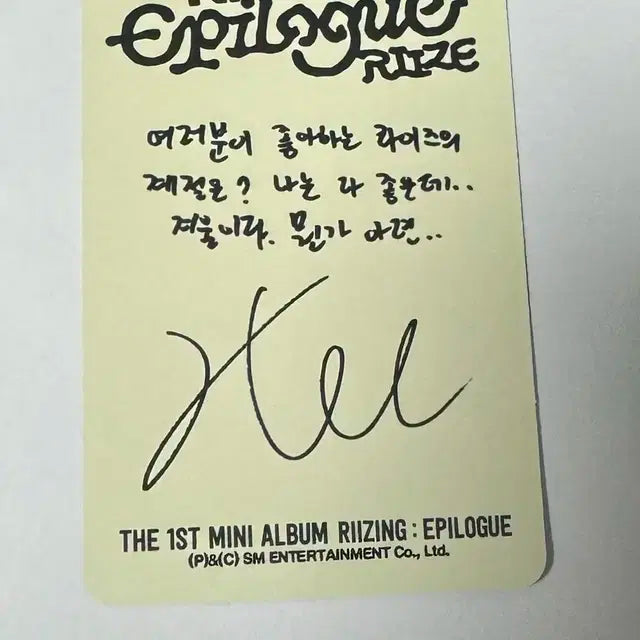 Epilogue
RIIZE
여러분이 좋아하는 라이즈의
계절은? 나는 다 좋은데..
겨울이랑. 뭔가 아련..
THE 1ST MINI ALBUM RIIZING : EPILOGUE
(P)&(C) SM ENTERTAINMENT Co., Ltd.